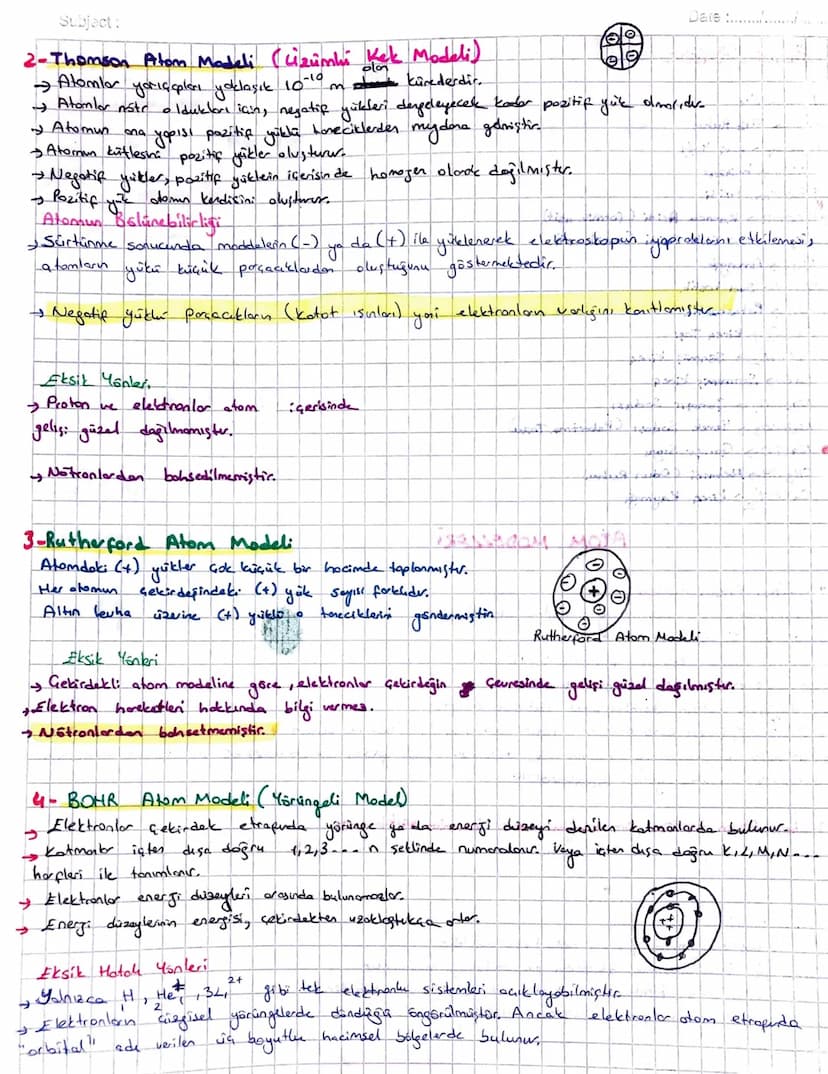 Subject :
Date :......./......./.....
2-Thomson Atom Modeli (Üzümlü Kek Modeli)
→ Atomlar yarıçapları yaklaşık 10⁻¹⁰ m olan kürelerdir.
→ Atomlar nötr oldukları için, negatif yükleri dengeleyecek kadar pozitif yük olmalıdır.
→ Atomun ana yapısı pozitif yüklü taneciklerden meydana gelmiştir.
→ Atomun kütlesini pozitif yükler oluşturur.
→ Negatif yükler, pozitif yüklerin içerisinde homojen olarak dağılmıştır.
→ Pozitif yük atomun kendisini oluşturur.
Atomun Bölünebilirliği
→ Sürtünme sonucunda maddelerin (-) ya da (+) ile yüklenerek elektroskopun yapraklarını etkilemesi,
atomların yükü küçük parçacıklardan oluştuğunu göstermektedir.
→ Negatif yüklü parçacıkların (katot ışınları) yani elektronların varlığını kanıtlamıştır.
Eksik Yönleri
→ Proton ve elektronlar atom içerisinde
gelişi güzel dağılmamıştır.
→ Nötronlardan bahsedilmemiştir.
3-Rutherford Atom Modeli
Atomdaki (+) yükler çok küçük bir hacimde toplanmıştır.
Her atomun çekirdeğindeki (+) yük sayısı farklıdır.
Altın levha üzerine (+) yüklü taneciklerini göndermiştir
Rutherford Atom Modeli
Eksik Yönleri
→ Çekirdekli atom modeline göre, elektronlar çekirdeğin çevresinde gelişi güzel dağılmıştır.
→ Elektron hareketleri hakkında bilgi vermez.
→ Nötronlardan bahsetmemiştir.
4- BOHR Atom Modeli (Yörüngeli Model)
→ Elektronlar çekirdek etrafında yörünge ya da enerji düzeyi denilen katmanlarda bulunur.
→ Katmanlar içten dışa doğru 1,2,3--- n şeklinde numaralanır. Veya içten dışa doğru K,L,M,N---
harfleri ile tanımlanır.
→ Elektronlar enerji düzeyleri arasında bulunamazlar.
→ Enerji düzeylerinin enerjisi, çekirdekten uzaklaştıkça artar.
Eksik Hatalı Yönleri
→ Yalnızca H, ₂He⁺, ₃Li²⁺ gibi tek elektronlu sistemleri açıklayabilmiştir.
→ Elektronların çizgisel yörüngelerde döndüğü öngörülmüştür. Ancak elektronlar atom etrafında
"orbital" adı verilen üç boyutlu hacimsel bölgelerde bulunur.